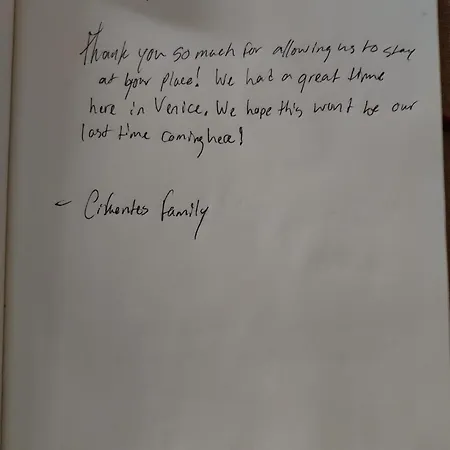 Thank you so much for allowing us to stay
at your place! We had a great time
here in Venice. We hope this wont be our
last time coming here!
- Cifuentes family